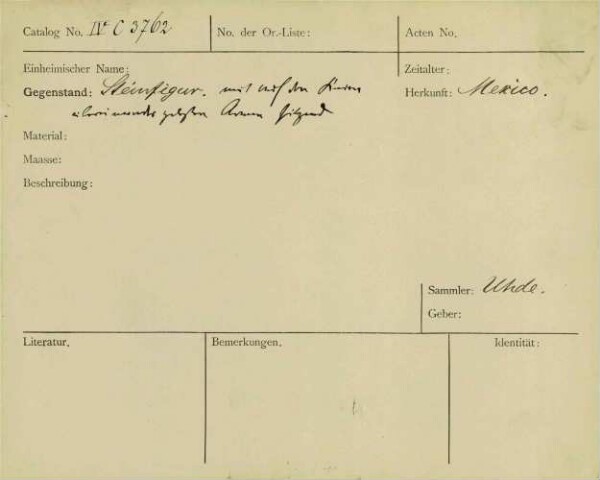 Catalog No. IV c C 3762 No. der Or.-Liste: Acten No.
Einheimischer Name: Zeitalter:
Gegenstand: Steinfigur. mit auf den Knieen Herkunft: Mexico.
übereinander gelegten Armen sitzend
Material:
Maasse:
Beschreibung:
Sammler: Uhde.
Geber:
Literatur. Bemerkungen. Identität: